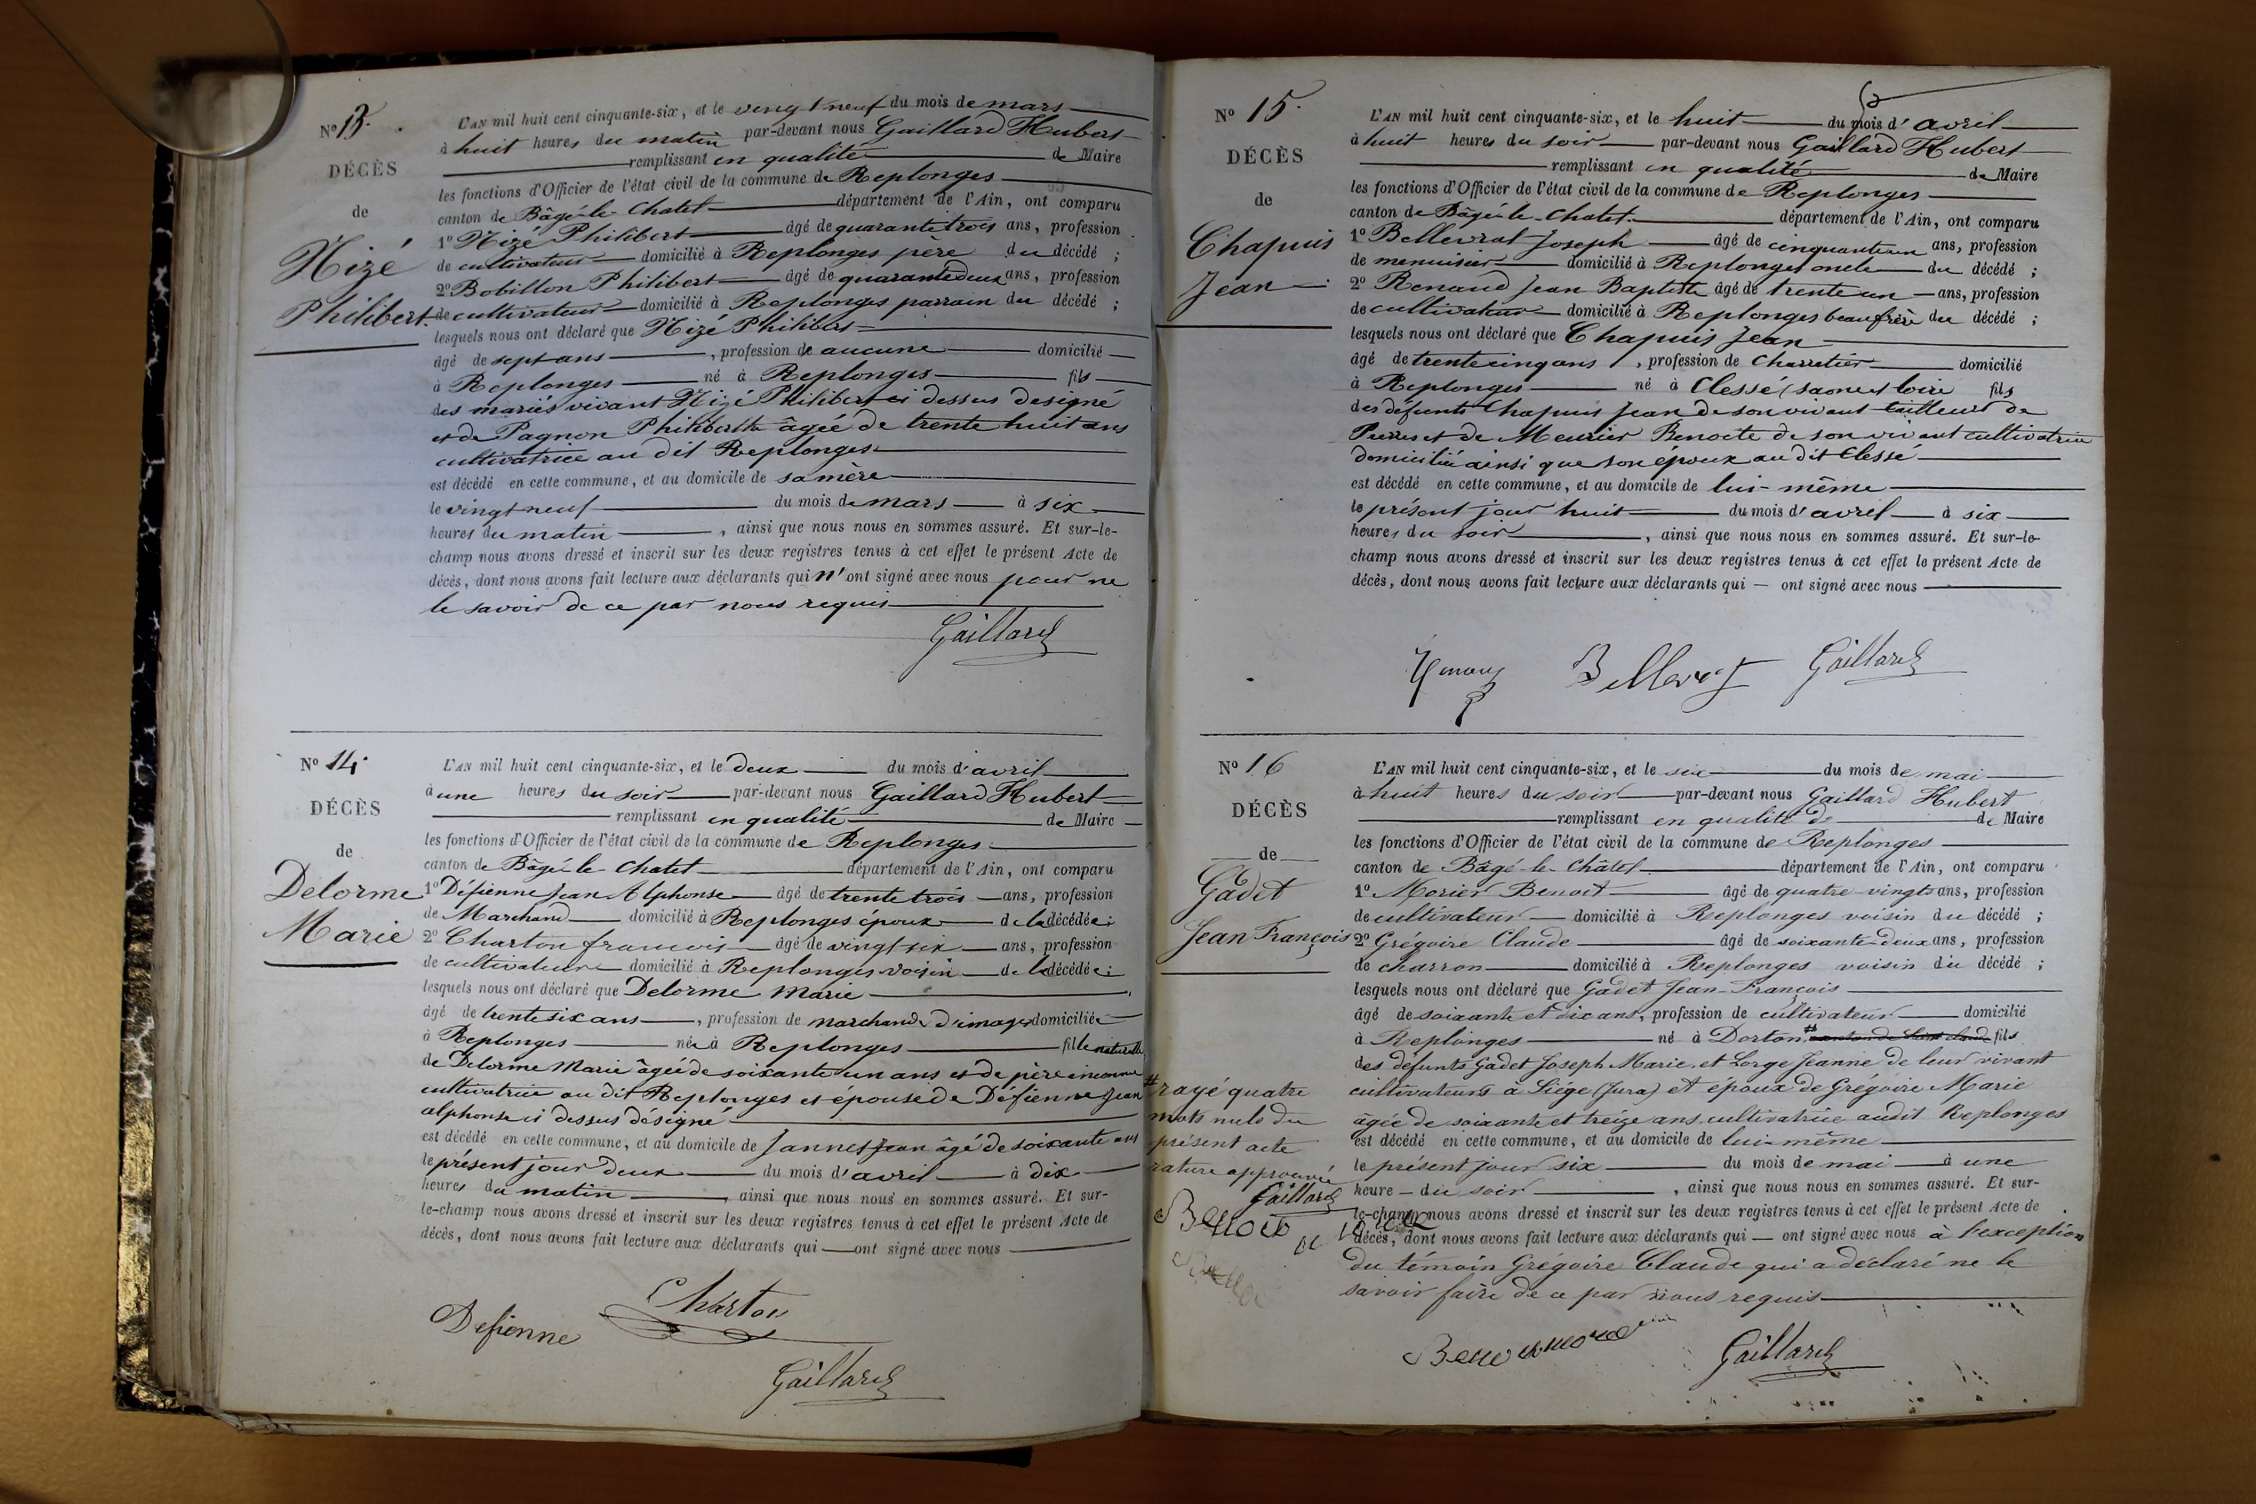 Nº 13.
DÉCÈS
de
Nizé
Philibert.
L'AN mil huit cent cinquante-six, et le vingt neuf du mois de mars
à huit heures du matin par-devant nous Gaillard Hubert
remplissant en qualité de Maire
les fonctions d'Officier de l'état civil de la commune de Replonges
canton de Bâgé-le Chatet département de l'Ain, ont comparu
1º Nizé Philibert âgé de quarante trois ans, profession
de cultivateur domicilié à Replonges père du décédé ;
2º Bobillon Philibert âgé de quarante deux ans, profession
de cultivateur domicilié à Replonges parrain du décédé ;
lesquels nous ont déclaré que Nizé Philibert
âgé de sept ans , profession de aucune domicilié
à Replonges né à Replonges fils
des mariés vivant Nizé Philibert ci dessus designé
et de Pagnon Philiberte âgée de trente huit ans
cultivatrice au dit Replonges
est décédé en cette commune, et au domicile de sa mère
le vingt neuf du mois de mars à six
heures du matin , ainsi que nous nous en sommes assuré. Et sur-le-
champ nous avons dressé et inscrit sur les deux registres tenus à cet effet le présent Acte de
décès, dont nous avons fait lecture aux déclarants qui n' ont signé avec nous pour ne
le savoir de ce par nous requis
Gaillard
Nº 14.
DÉCÈS
de
Delorme
Marie
L'AN mil huit cent cinquante-six, et le deux du mois d'avril
à une heures du soir par-devant nous Gaillard Hubert
remplissant en qualité de Maire
les fonctions d'Officier de l'état civil de la commune de Replonges
canton de Bâgé-le Chatet département de l'Ain, ont comparu
1º Défienne Jean Alphonse âgé de trente trois ans, profession
de Marchand domicilié à Replonges époux de la décédée ;
2º Charton francois âgé de vingt six ans, profession
de cultivateur domicilié à Replonges voisin de la décédée ;
lesquels nous ont déclaré que Delorme Marie
âgé de trente six ans , profession de marchande d'images domiciliée
à Replonges née à Replonges fille naturelle
de Delorme Marie âgée de soixante un ans et de père inconnu
cultivatrice au dit Replonges et épouse de Défienne Jean
alphonse ci dessus désigné
est décédé en cette commune, et au domicile de Jannet Jean âgé de soixante ans
le présent jour deux du mois d'avril à dix
heures du matin , ainsi que nous nous en sommes assuré. Et sur-
le-champ nous avons dressé et inscrit sur les deux registres tenus à cet effet le présent Acte de
décès, dont nous avons fait lecture aux déclarants qui ont signé avec nous
Defienne Charton
Gaillard
Nº 15.
DÉCÈS
de
Chapuis
Jean
L'AN mil huit cent cinquante-six, et le huit du mois d'avril
à huit heures du soir par-devant nous Gaillard Hubert
remplissant en qualité de Maire
les fonctions d'Officier de l'état civil de la commune de Replonges
canton de Bâgé-le-Chatet département de l'Ain, ont comparu
1º Bellevrat Joseph âgé de cinquante un ans, profession
de menuisier domicilié à Replonges oncle du décédé ;
2º Renaud Jean Baptiste âgé de trente un ans, profession
de cultivateur domicilié à Replonges beau frère du décédé ;
lesquels nous ont déclaré que Chapuis Jean
âgé de trente cinq ans , profession de Charretier domicilié
à Replonges né à Clessé (saone et loire fils
des défunts Chapuis Jean de son vivant tailleur de
Pierres et de Meurier Benoite de son vivant cultivatrice
domiciliée ainsi que son époux au dit Clesse
est décédé en cette commune, et au domicile de lui-même
le présent jour huit du mois d'avril à six
heures du soir , ainsi que nous nous en sommes assuré. Et sur-le-
champ nous avons dressé et inscrit sur les deux registres tenus à cet effet le présent Acte de
décès, dont nous avons fait lecture aux déclarants qui — ont signé avec nous
Bellevrat Gaillard
Nº 16
DÉCÈS
de
Gadet
Jean François
L'AN mil huit cent cinquante-six, et le six du mois de mai
à huit heures du soir par-devant nous Gaillard Hubert
remplissant en qualité de de Maire
les fonctions d'Officier de l'état civil de la commune de Replonges
canton de Bâgé-le-Châtel département de l'Ain, ont comparu
1º Morier Benoit âgé de quatre-vingts ans, profession
de cultivateur domicilié à Replonges voisin du décédé ;
2º Grégoire Claude âgé de soixante-deux ans, profession
de charron domicilié à Replonges voisin du décédé ;
lesquels nous ont déclaré que Gadet Jean-François
âgé de soixante et dix ans, profession de cultivateur domicilié
à Replonges né à Dorton fils
des défunts Gadet Joseph Marie et Lorge Jeanne de leur vivant
cultivateurs à Siége (Jura) et époux de Grégoire Marie
âgée de soixante et treize ans cultivatrice audit Replonges
est décédé en cette commune, et au domicile de lui-même
le présent jour six du mois de mai à une
heure du soir , ainsi que nous nous en sommes assuré. Et sur-
le-champ nous avons dressé et inscrit sur les deux registres tenus à cet effet le présent Acte de
décès, dont nous avons fait lecture aux déclarants qui — ont signé avec nous à l'exception
du témoin Grégoire Claude qui a déclaré ne le
savoir faire de ce par nous requis
# rayé quatre
mots nuls du
présent acte
rature approuvée
Gaillard
Benoit
Gaillard